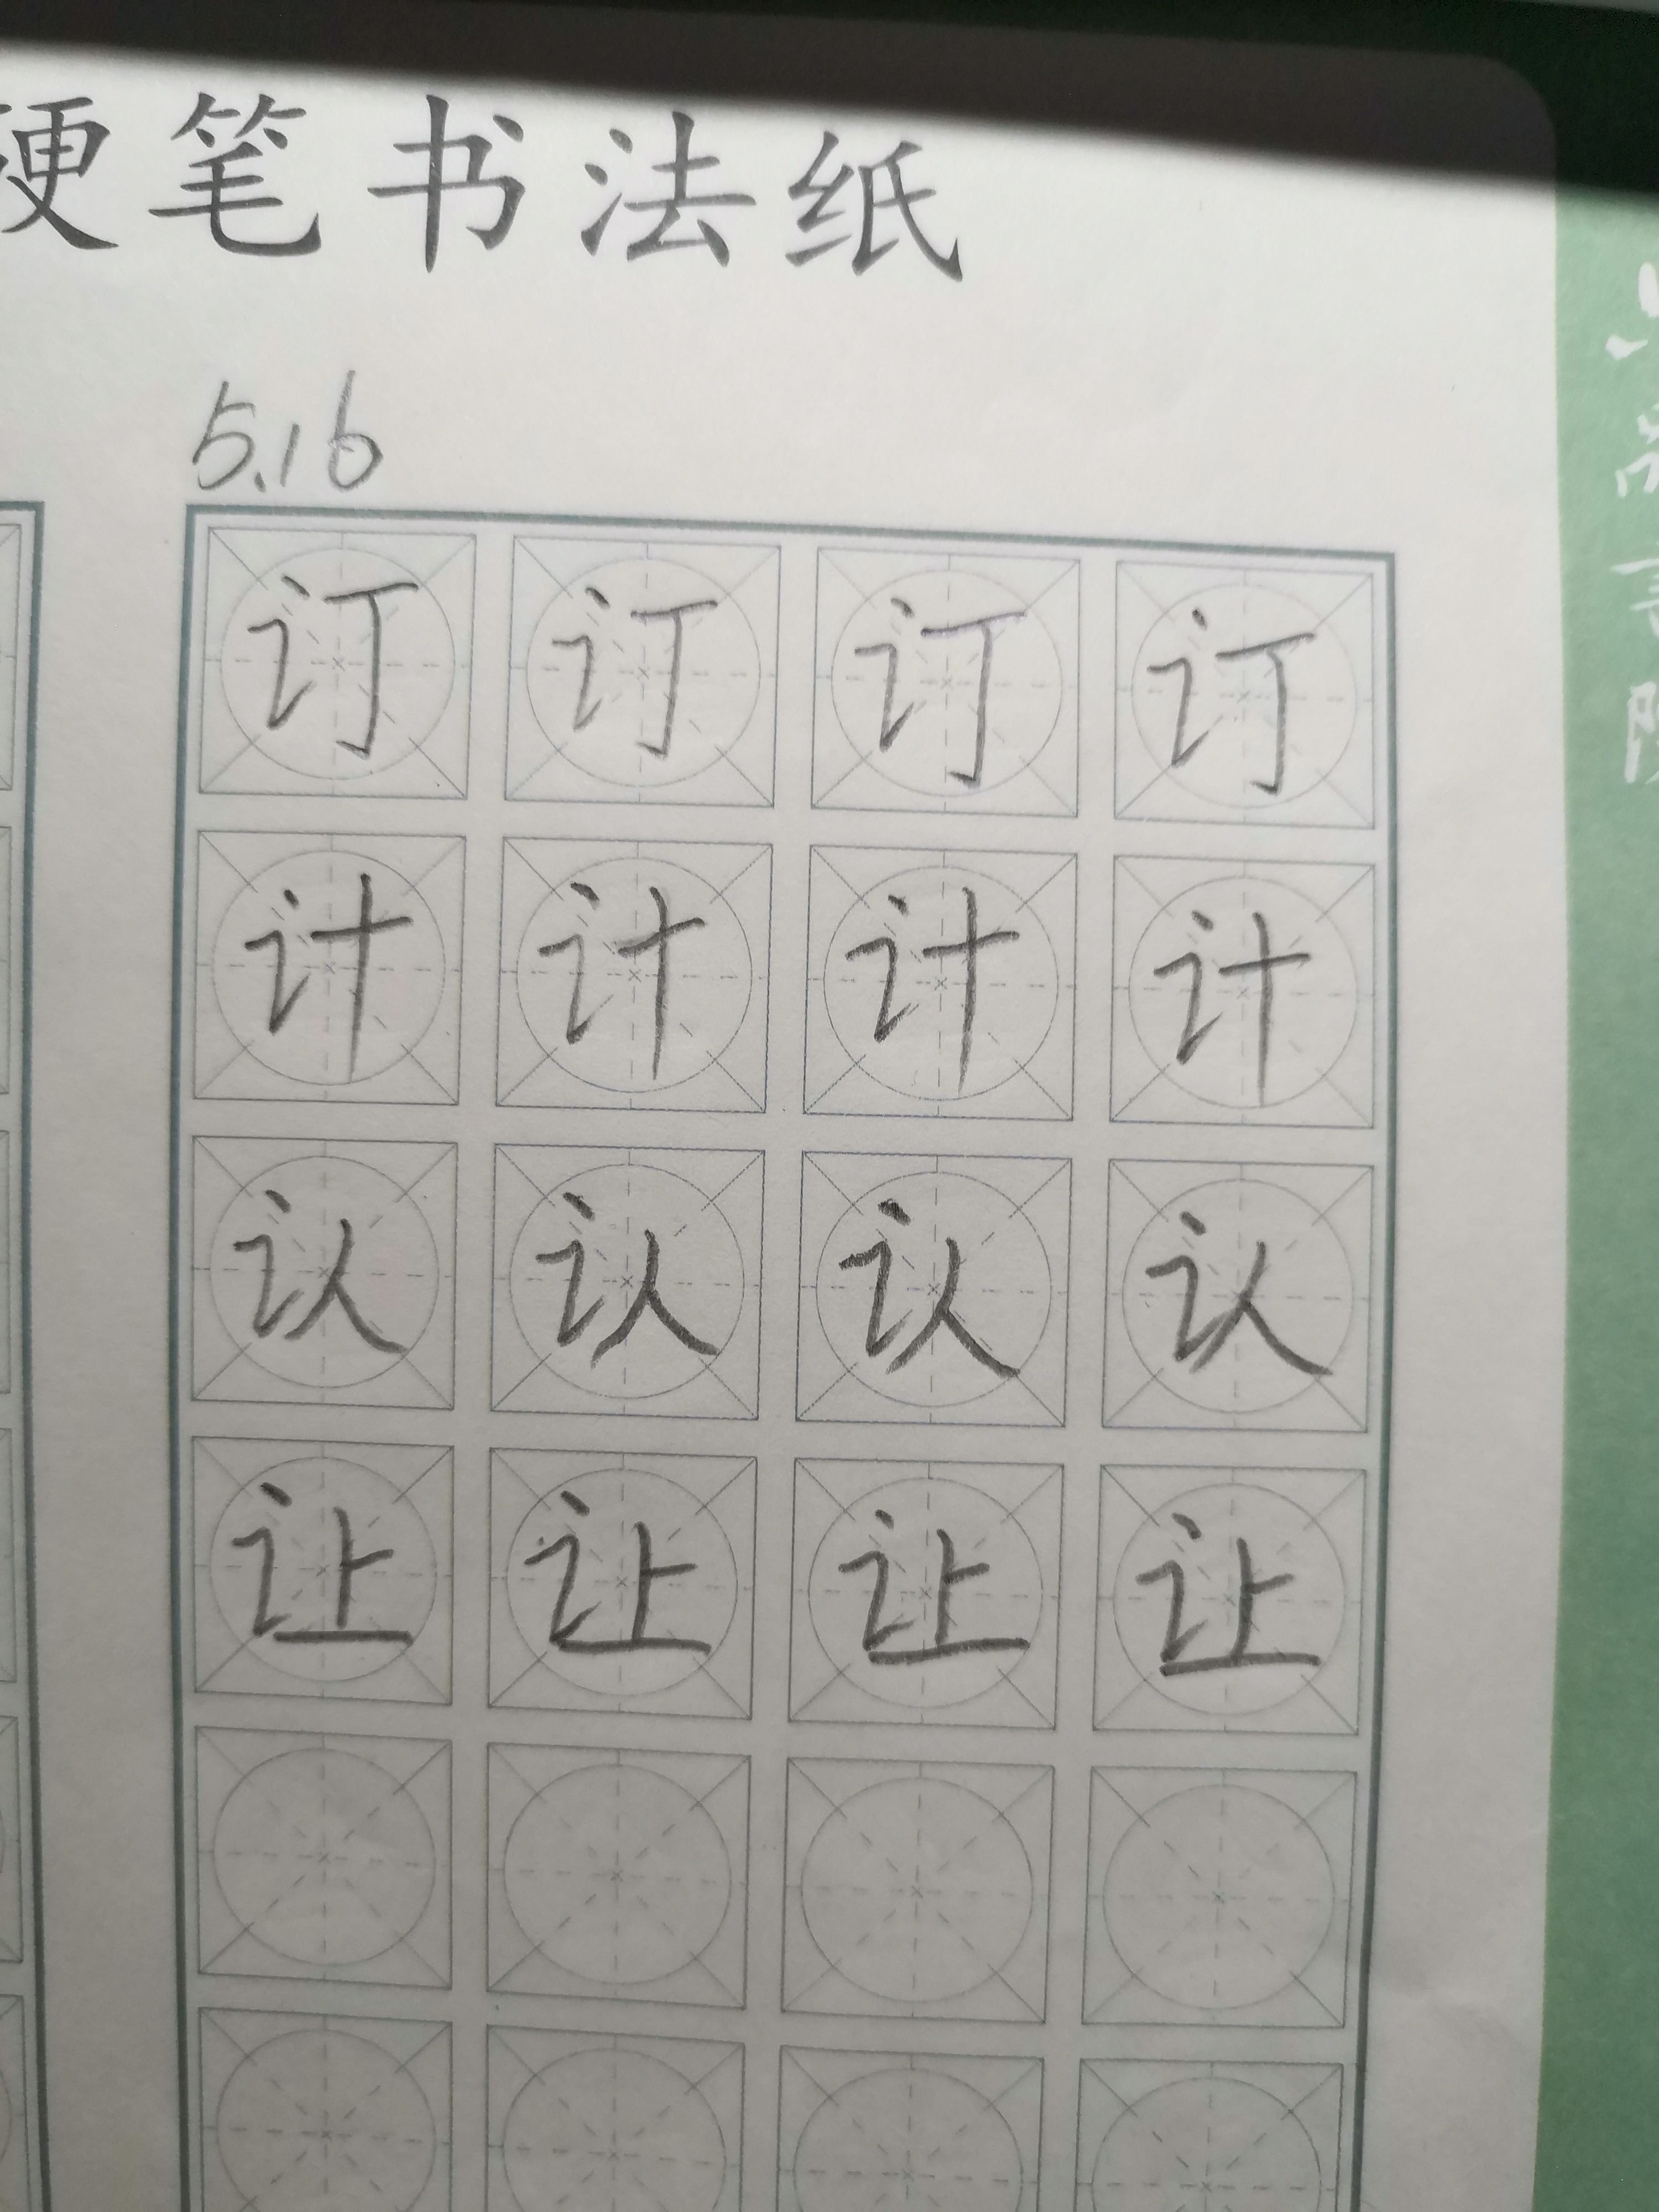 硬笔书法纸
5.16
订 订 订 订
计 计 计 计
认 认 认 认
让 让 让 让